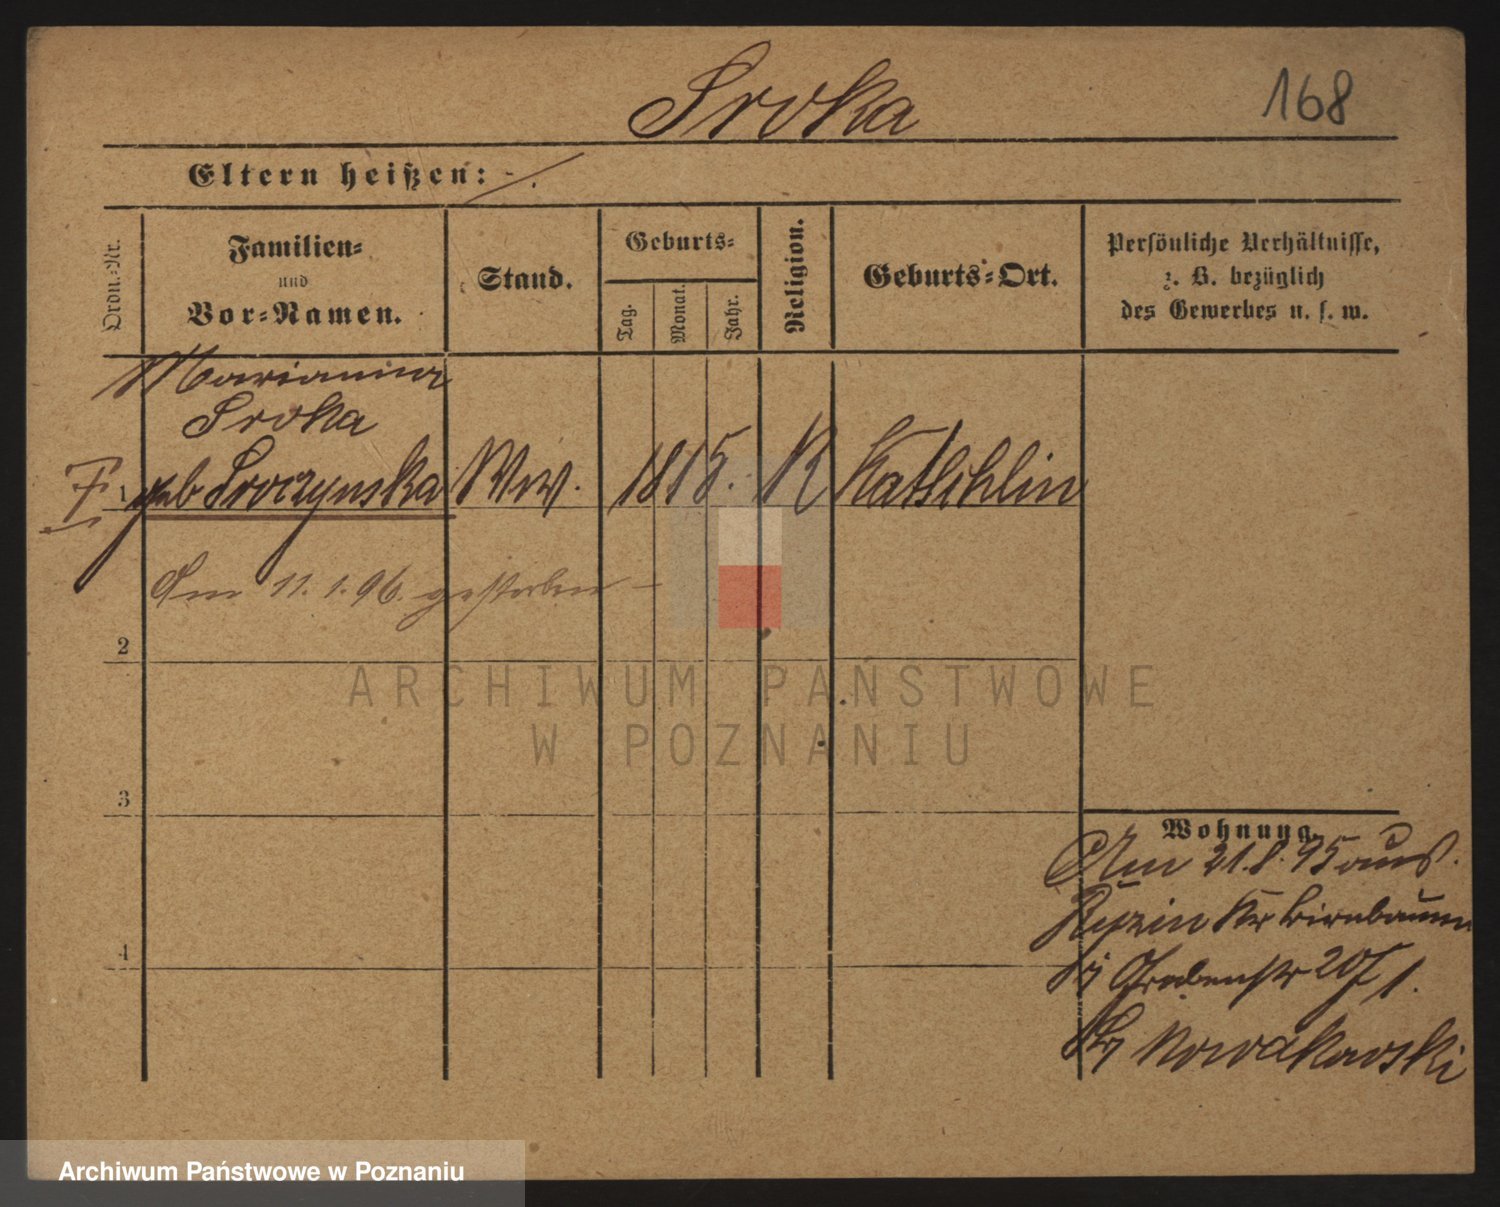 Sroka
168
Eltern heißen: -/.
Ordn.-Nr.
Familien-
und
Vor-Namen.
Stand.
Geburts-
Tag.
Monat.
Jahr.
Religion.
Geburts-Ort.
Persönliche Verhältnisse,
z. B. bezüglich
des Gewerbes u. s. w.
Marianna
Sroka
F 1 geb Sroczynska Ww. 1815. K Katschlin
Am 11.1.96. gestorben –
2
3
4
Wohnung
Am 21.8.95 aus
Ryzin Kr Birnbaum
Grabenstr 20 I.
b/ Nowakowski
ARCHIWUM PAŃSTWOWE
W POZNANIU
Archiwum Państwowe w Poznaniu